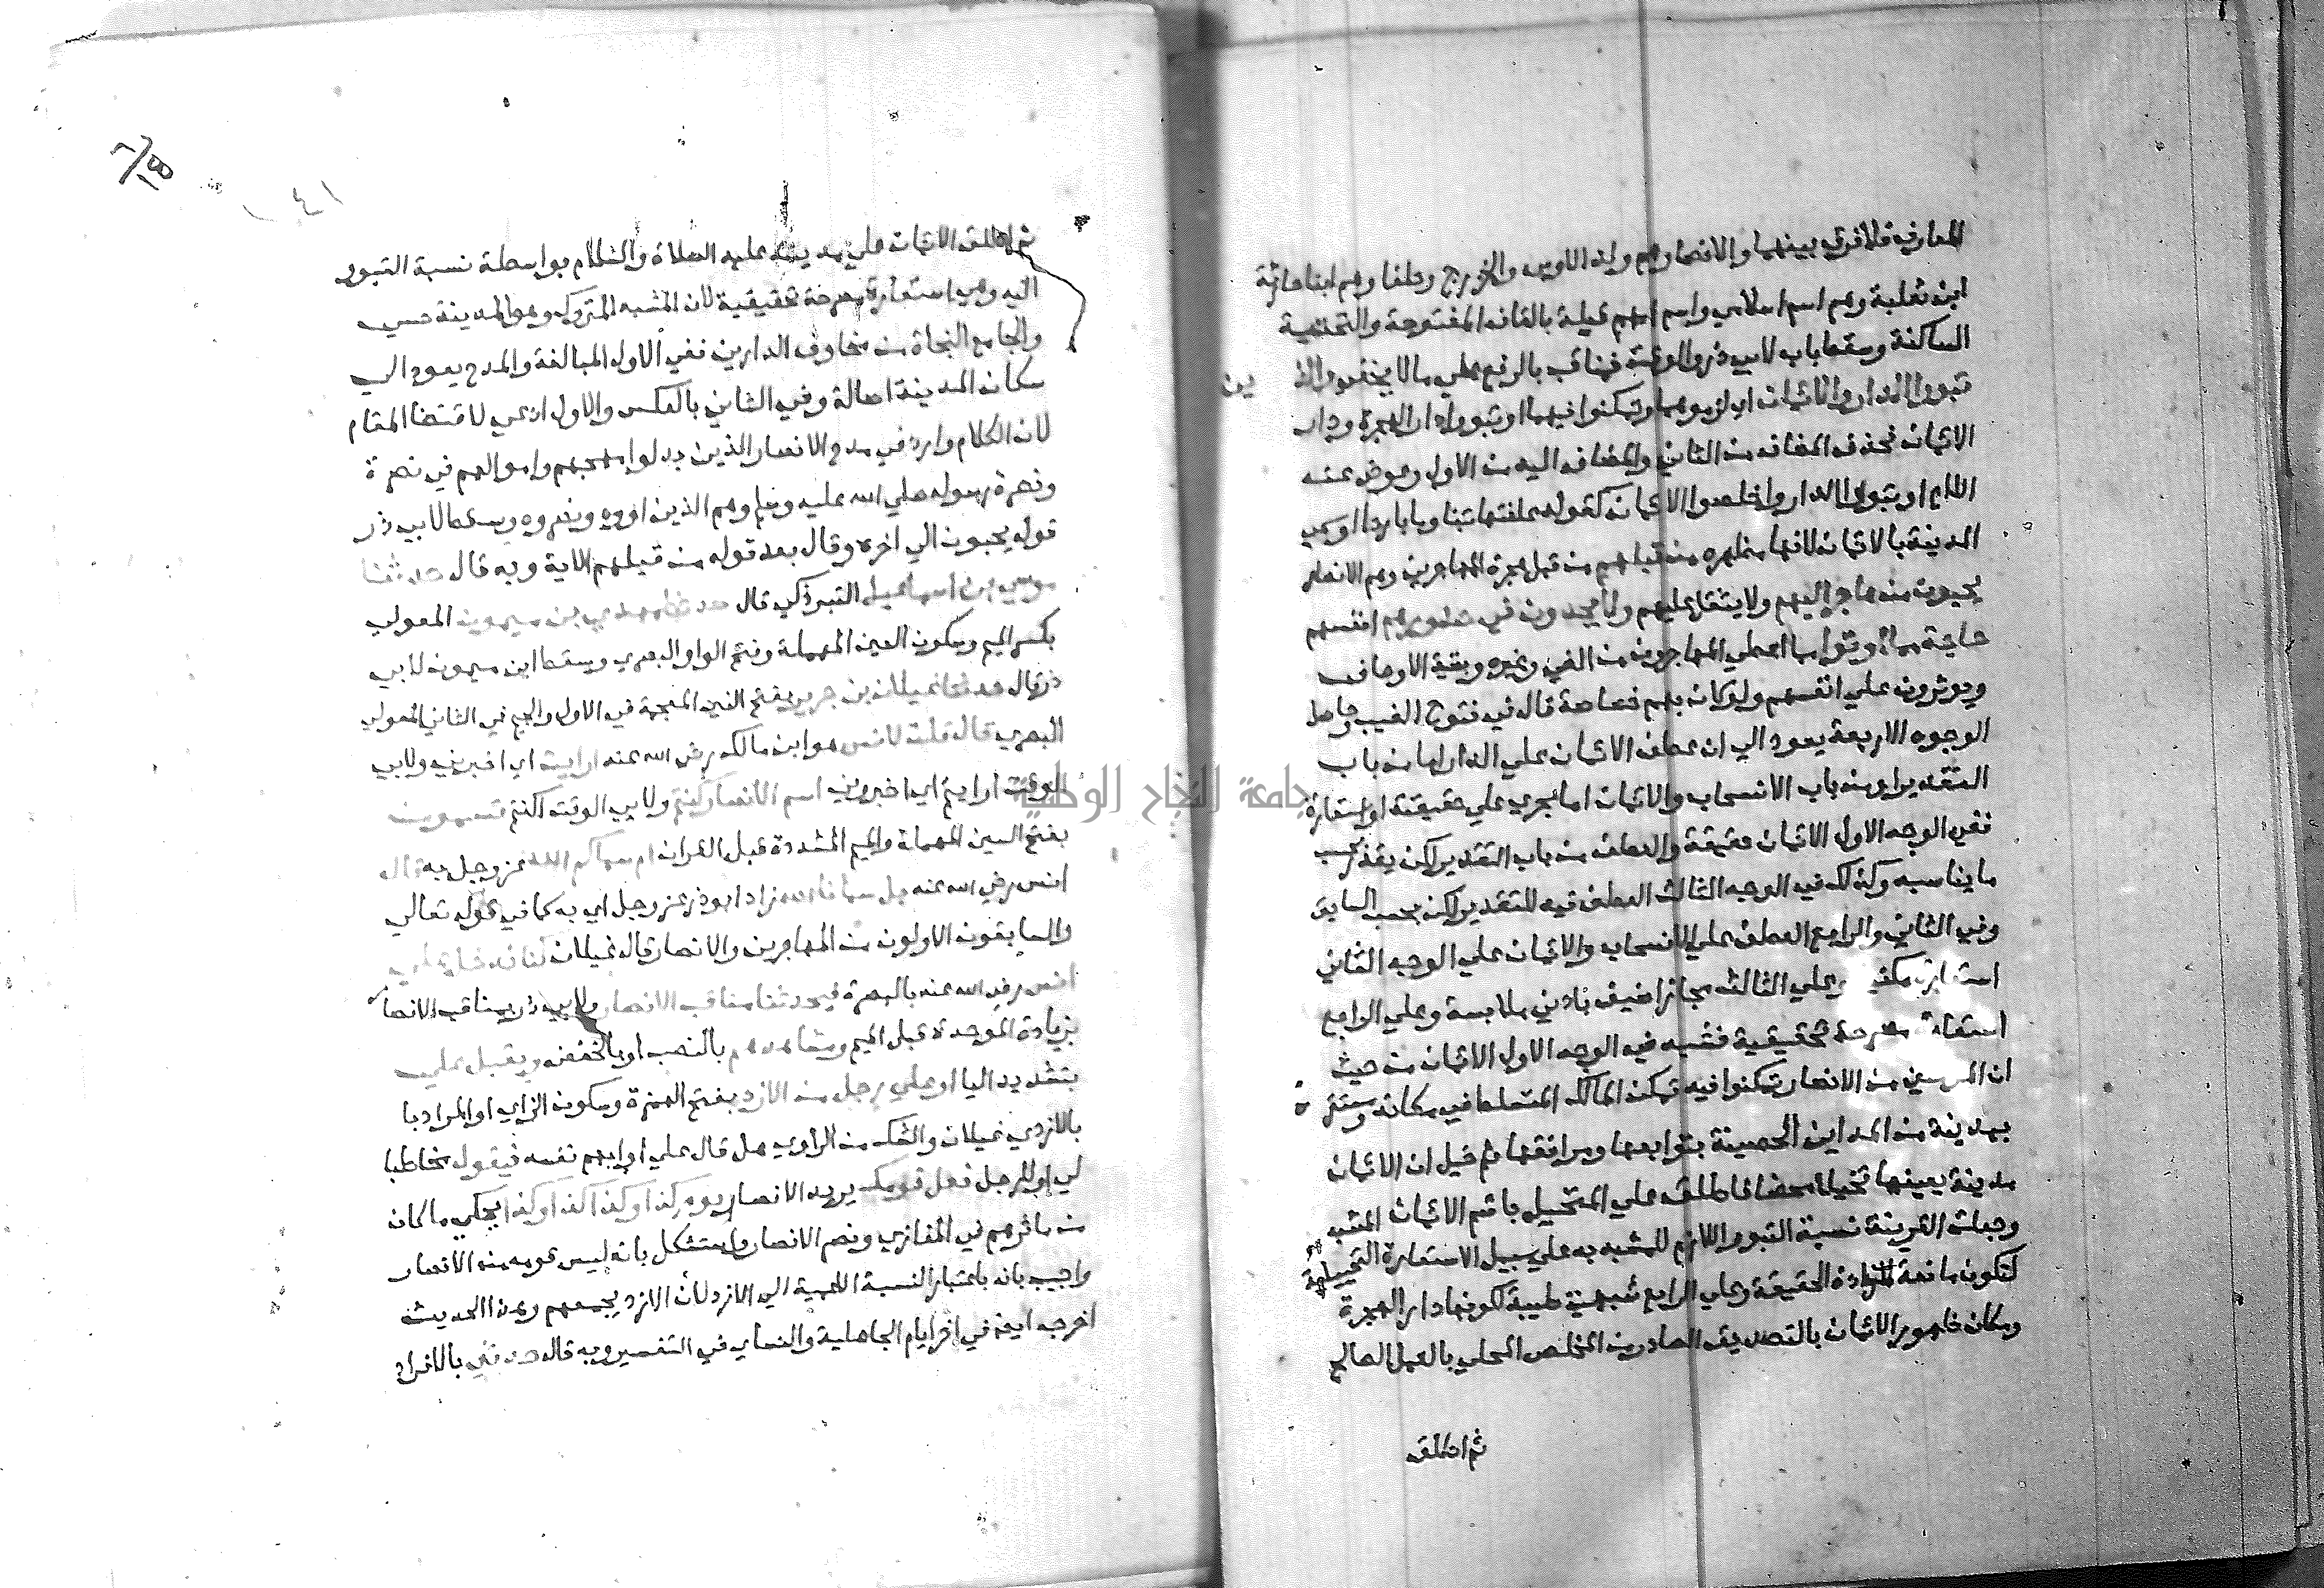 المعارف فلا فرق بينهما والانصار هم ولد الاوس والخزرج وحلفاوهم ابنا حارثة
ابن ثعلبة وهم اسم اسلامي واسم امهم قيلة بالقاف المفتوحة والتحتية
الساكنة وسقط باب لابي ذر والوقت فمناقب بالرفع علي ما لا يخفي والذين
تبووا الدار والايمان اي لزموهما وتمكنوا فيهما او تبووا دار الهجرة ودار
الايمان فحذف المضاف من الثاني والمضاف اليه من الاول وعوض عنه
اللام او تبووا الدار واخلصوا الايمان كقوله علفتها تبنا وما باردا او سمي
المدينة بالايمان لانها مظهره من قبلهم من قبل هجرة المهاجرين وهم الانصار
يحبون من هاجر اليهم ولا يثقل عليهم ولا يجدون في صدورهم انفسهم
حاجة مما اوتوا مما اعطي المهاجرون من الفي وغيره وبقية الاوصاف
ويوثرون علي انفسهم ولو كان بهم خصاصة قال في فتوح الغيب وحاصل
الوجوه الاربعة يعود الي ان عطف الايمان علي الدار اما من باب
التقدير او من باب الانسحاب والايمان اما يجري علي حقيقته او استعارة
ففي الوجه الاول الايمان حقيقة والعطف من باب التقدير لكن يقدر بحسب
ما يناسبه وكذلك في الوجه الثالث العطف فيه للتقدير لكن بحسب السابق
وفي الثاني والرابع العطف علي الانسحاب والايمان علي الوجه الثاني
استعارة وعلي الثالث مجاز اضيف بادني ملابسة وعلي الرابع
استعارة مصرحة تحقيقية فشبه في الوجه الاول الايمان من حيث
ان من الانصار تمكنوا فيه تمكن المالك المتسلط في مكانه ومستقره
بمدينة من المداين الحصينة بتوابعها ومرافقها ثم خيل ان الايمان
مدينة بعينها تخييلا محضا فاطلق علي المتخيل باسم الايمان المشبه
وجعلت القرينة نسبة التبوء اللازم للمشبه به علي سبيل الاستعارة التخييلية
لتكون مانعة لارادة الحقيقة وعلي الرابع شبهت طيبة لكونها دار الهجرة
ومكان ظهور الايمان بالتصديق الصادر من المخلص المحلي بالعمل الصالح
ثم اطلق
١٤١
ثم اطلق الايمان علي مدينته عليه الصلاة والسلام بواسطة نسبة التبوء
اليه وهي استعارة مصرحة تحقيقية لان المشبه المتروك وهو المدينة حسي
والجامع النجاة من مخاوف الدارين ففي الاول المبالغة والمدح يعود الي
سكان المدينة اصالة وفي الثاني بالعكس والاول ادعي لاقتضا المقام
لان الكلام وارد في مدح الانصار الذين بذلوا مهجهم واموالهم في نصرة
ونصرة رسوله صلي الله عليه وسلم وهم الذين اووه ونصروه وسقط لابي ذر
قوله يحبون الي اخره وقال بعد قوله من قبلهم الاية وبه قال حدثنا
موسي بن اسماعيل التبوذكي قال حدثنا مهدي بن ميمون المعولي
بكسر الميم وسكون العين المهملة وفتح الواو البصري وسقط ابن ميمون لابي
ذر قال حدثنا غيلان بن جرير بفتح الغين المعجمة في الاول والجيم في الثاني المعولي
البصري قال قلت لانس هو ابن مالك رضي الله عنه ارايت اي اخبرني ولابي
الوقت ارايتم اي اخبروني اسم الانصار كنتم ولابي الوقت اكنتم تسمون
بفتح السين المهملة والميم المشددة قبل القران ام سماكم الله عز وجل به قال
انس رضي الله عنه بل سمانا الله زاد ابو ذر عز وجل اي به كما في قوله تعالي
والسابقون الاولون من المهاجرين والانصار قال غيلان كنا ندخل علي
انس رضي الله عنه بالبصرة فيحدثنا مناقب الانصار ولابي ذر بمناقب الانصار
بزيادة الموحدة قبل الميم ومشاهدهم بالنصب او بالخفض ويقبل علي
بتشديد اليا او علي رجل من الازد بفتح الهمزة وسكون الزاي او المراد با
بالازدي غيلان والشك من الراوي هل قال علي او ابهم نفسه فيقول مخاطبا
لي او للرجل فعل قومك يريد الانصار يوم كذا وكذا كذا وكذا يحكي ما كان
من ماثرهم في المغازي ونصر الانصار واستشكل بانه ليس قومه من الانصار
واجيب بانه باعتبار النسبة الاعمية الي الازد لان الازد يجمعهم وهذا الحديث
اخرجه ايضا في اخر ايام الجاهلية والنساي في التفسير وبه قال حدثني بالافراد
جامعة النجاح الوطنية